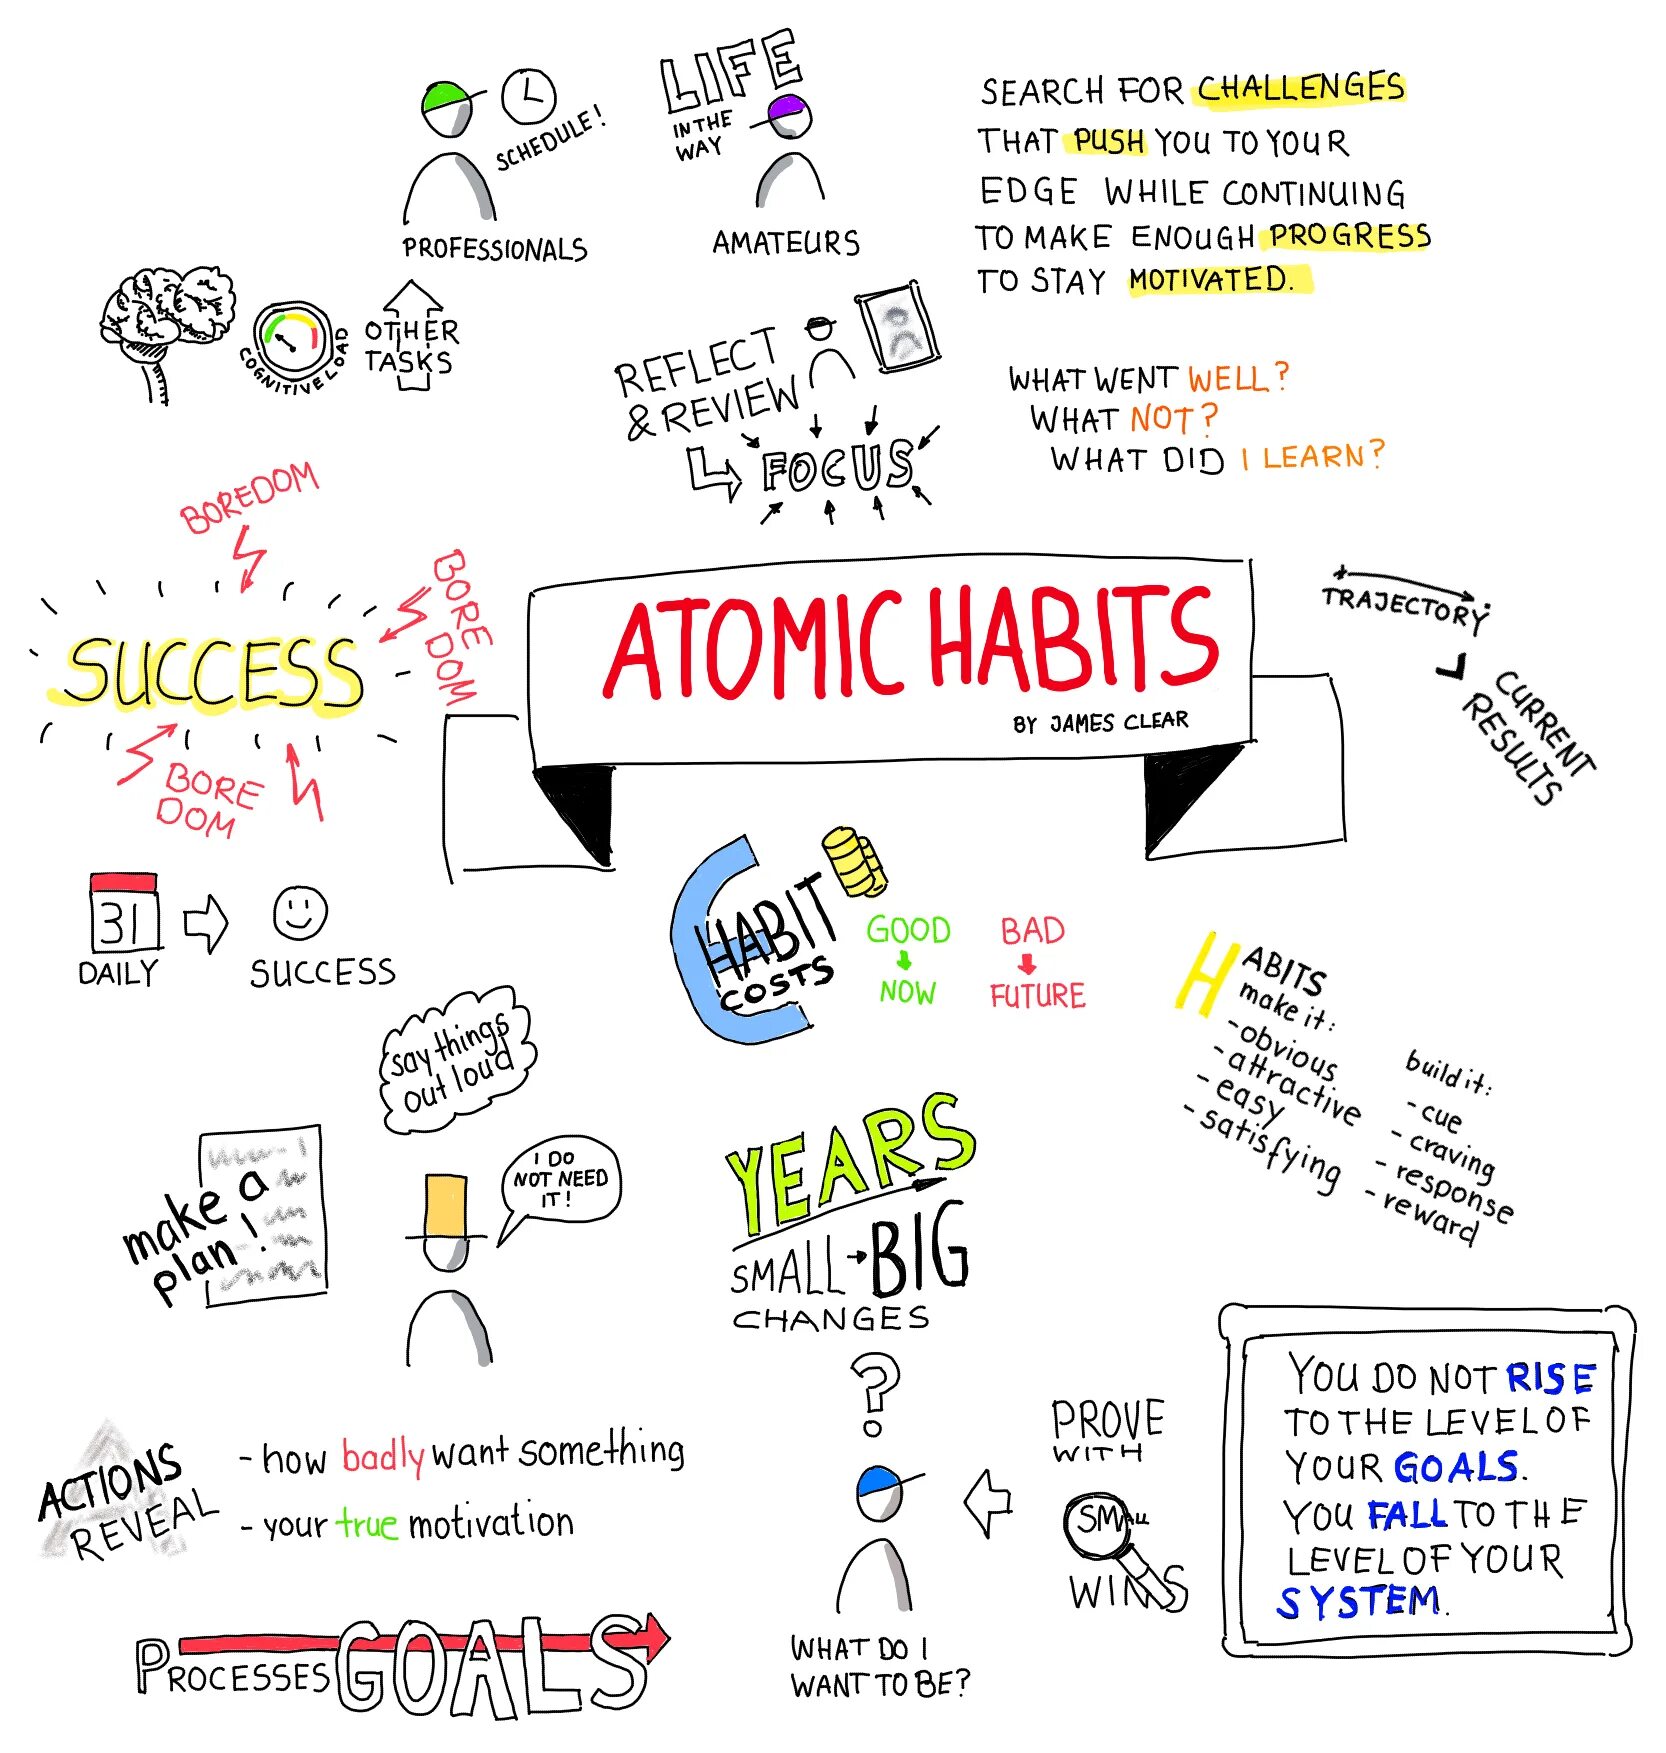 SCHEDULE!
PROFESSIONALS
LIFE
IN THE
WAY
AMATEURS
SEARCH FOR CHALLENGES
THAT PUSH YOU TO YOUR
EDGE WHILE CONTINUING
TO MAKE ENOUGH PROGRESS
TO STAY MOTIVATED.
COGNITIVE LOAD
OTHER
TASKS
REFLECT
& REVIEW
FOCUS
WHAT WENT WELL?
WHAT NOT?
WHAT DID I LEARN?
BOREDOM
BORE
DOM
SUCCESS
BORE
DOM
ATOMIC HABITS
BY JAMES CLEAR
TRAJECTORY
CURRENT
RESULTS
31
DAILY
SUCCESS
HABIT
COSTS
GOOD
NOW
BAD
FUTURE
HABITS
make it:
- obvious
- attractive
- easy
- satisfying
build it:
- cue
- craving
- response
- reward
say things
out loud
make a
plan!
I DO
NOT NEED
IT!
YEARS
SMALL BIG
CHANGES
ACTIONS
REVEAL
- how badly want something
- your true motivation
PROCESSES GOALS
?
WHAT DO I
WANT TO BE?
PROVE
WITH
SMALL
WINS
YOU DO NOT RISE
TO THE LEVEL OF
YOUR GOALS.
YOU FALL TO THE
LEVEL OF YOUR
SYSTEM.